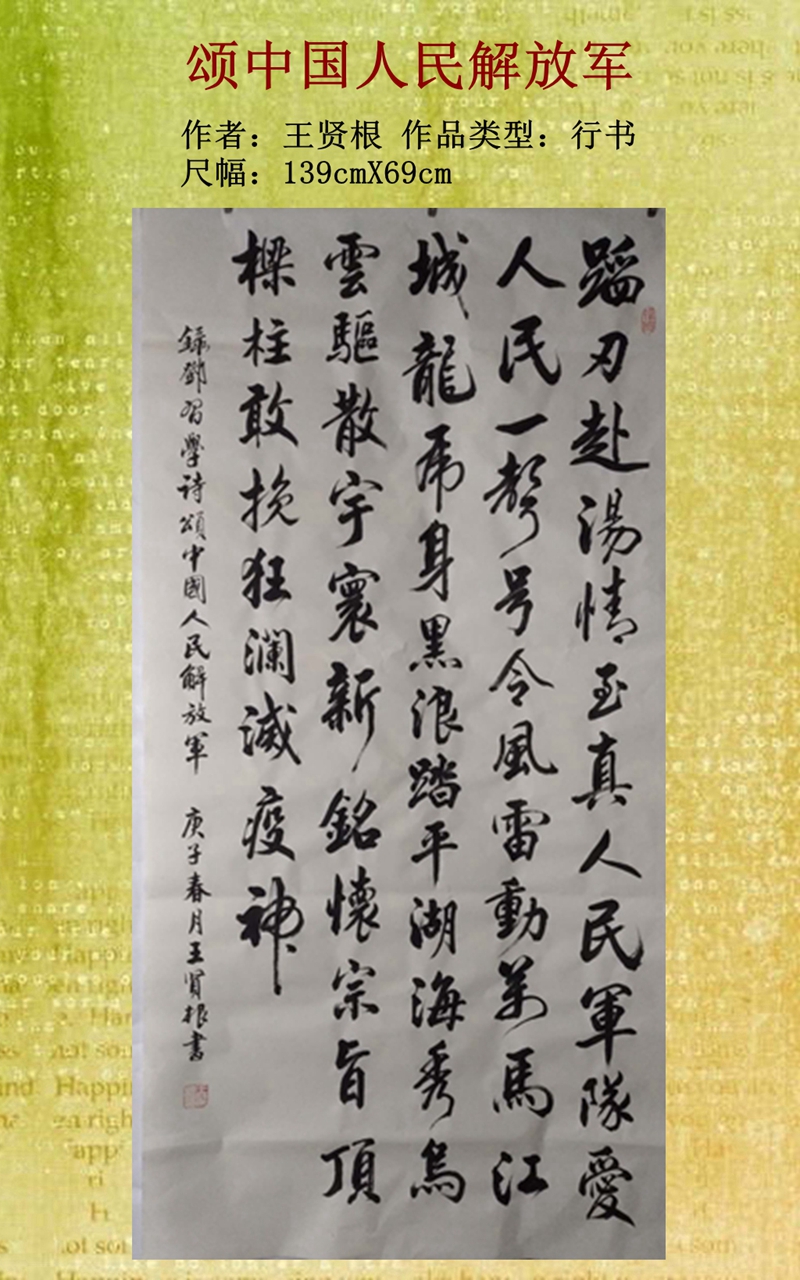 颂中国人民解放军
作者：王贤根 作品类型：行书
尺幅：139cmX69cm
蹈刃赴湯情至真人民軍隊愛
人民一聲号令風雷動萬馬江
城龍虎身黑浪踏平湖海秀烏
雲驅散宇寰新銘懷宗旨頂
樑柱敢挽狂瀾滅疫神
錄鄧習學詩頌中國人民解放軍 庚子春月王賢根書